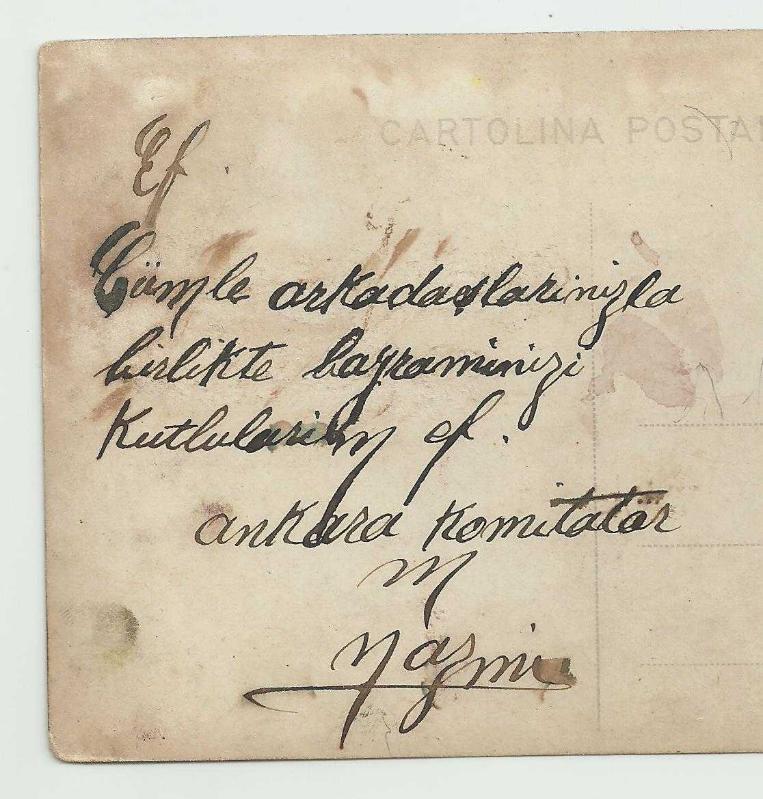 CARTOLINA POSTA
Ef.
Cümle arkadaşlarinizla
birlikte bayraminizi
Kutlularim ef.
ankara Komitatar
M
Nazmi